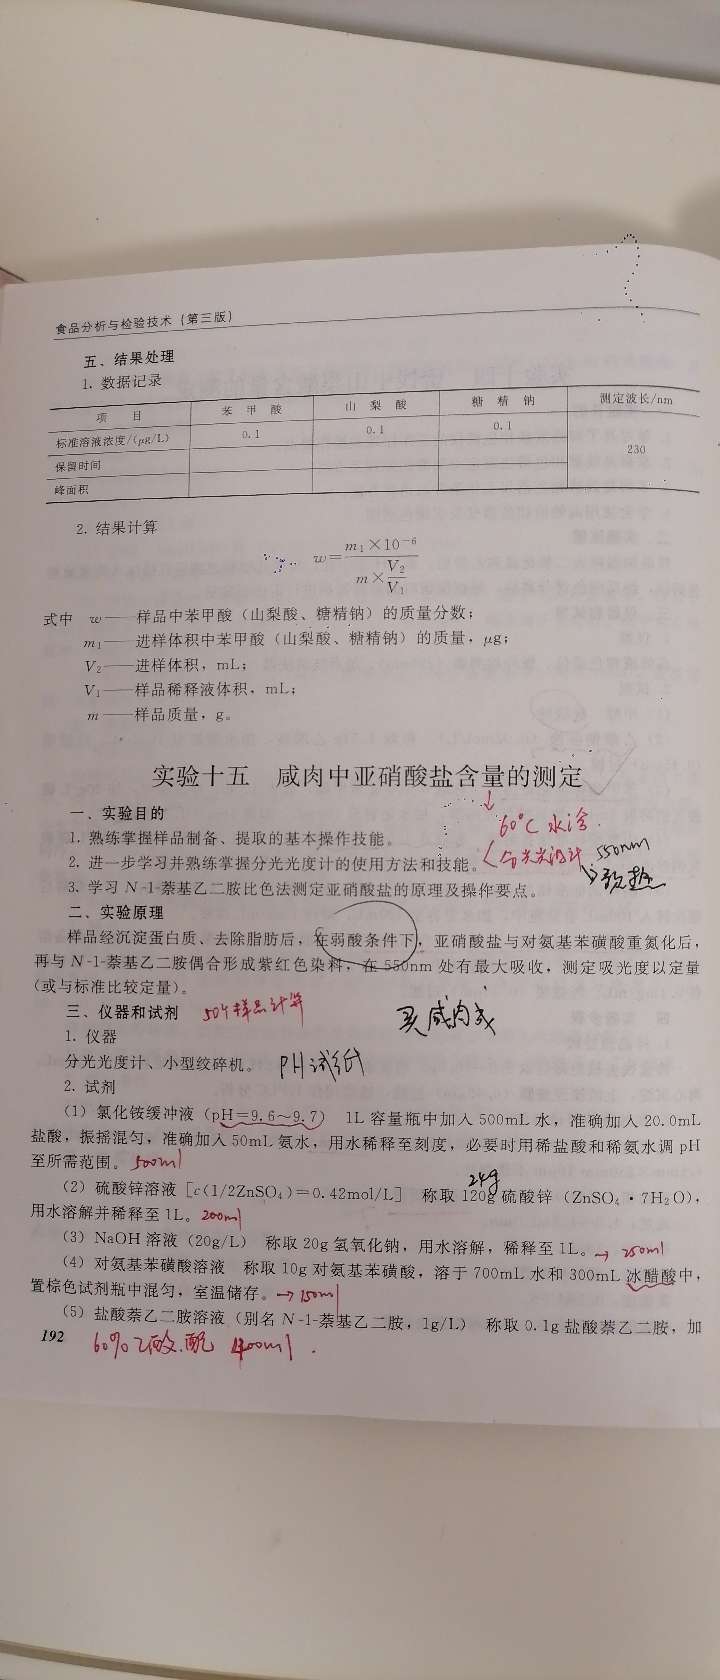 食品分析与检验技术(第三版)
五、结果处理
1. 数据记录
项 目 苯 甲 酸 山 梨 酸 糖 精 钠 测定波长/nm
标准溶液浓度/(μg/L) 0.1 0.1 0.1 230
保留时间
峰面积
2. 结果计算
w=m₁×10⁻⁶/(m×V₂/V₁)
式中 w——样品中苯甲酸(山梨酸、糖精钠)的质量分数;
m₁——进样体积中苯甲酸(山梨酸、糖精钠)的质量,μg;
V₂——进样体积,mL;
V₁——样品稀释液体积,mL;
m——样品质量,g。
实验十五 咸肉中亚硝酸盐含量的测定
一、实验目的
60℃ 水浴
1. 熟练掌握样品制备、提取的基本操作技能。
2. 进一步学习并熟练掌握分光光度计的使用方法和技能。 分光光度计 550nm
预热
3. 学习 N-1-萘基乙二胺比色法测定亚硝酸盐的原理及操作要点。
二、实验原理
样品经沉淀蛋白质、去除脂肪后,在弱酸条件下,亚硝酸盐与对氨基苯磺酸重氮化后,
再与 N-1-萘基乙二胺偶合形成紫红色染料,在 550nm 处有最大吸收,测定吸光度以定量
(或与标准比较定量)。
三、仪器和试剂 50个样品计算
买咸肉
1. 仪器
分光光度计、小型绞碎机。 PH试纸
2. 试剂
(1) 氯化铵缓冲液(pH=9.6~9.7) 1L 容量瓶中加入 500mL 水,准确加入 20.0mL
盐酸,振摇混匀,准确加入 50mL 氨水,用水稀释至刻度,必要时用稀盐酸和稀氨水调 pH
至所需范围。 500ml
24g
(2) 硫酸锌溶液[c(1/2ZnSO₄)=0.42mol/L] 称取 120g 硫酸锌(ZnSO₄·7H₂O),
用水溶解并稀释至 1L。 200ml
(3) NaOH 溶液(20g/L) 称取 20g 氢氧化钠,用水溶解,稀释至 1L。→ 250ml
(4) 对氨基苯磺酸溶液 称取 10g 对氨基苯磺酸,溶于 700mL 水和 300mL 冰醋酸中,
置棕色试剂瓶中混匀,室温储存。→ 150ml
(5) 盐酸萘乙二胺溶液(别名 N-1-萘基乙二胺,1g/L) 称取 0.1g 盐酸萘乙二胺,加
192
60% 乙酸.配 400ml.